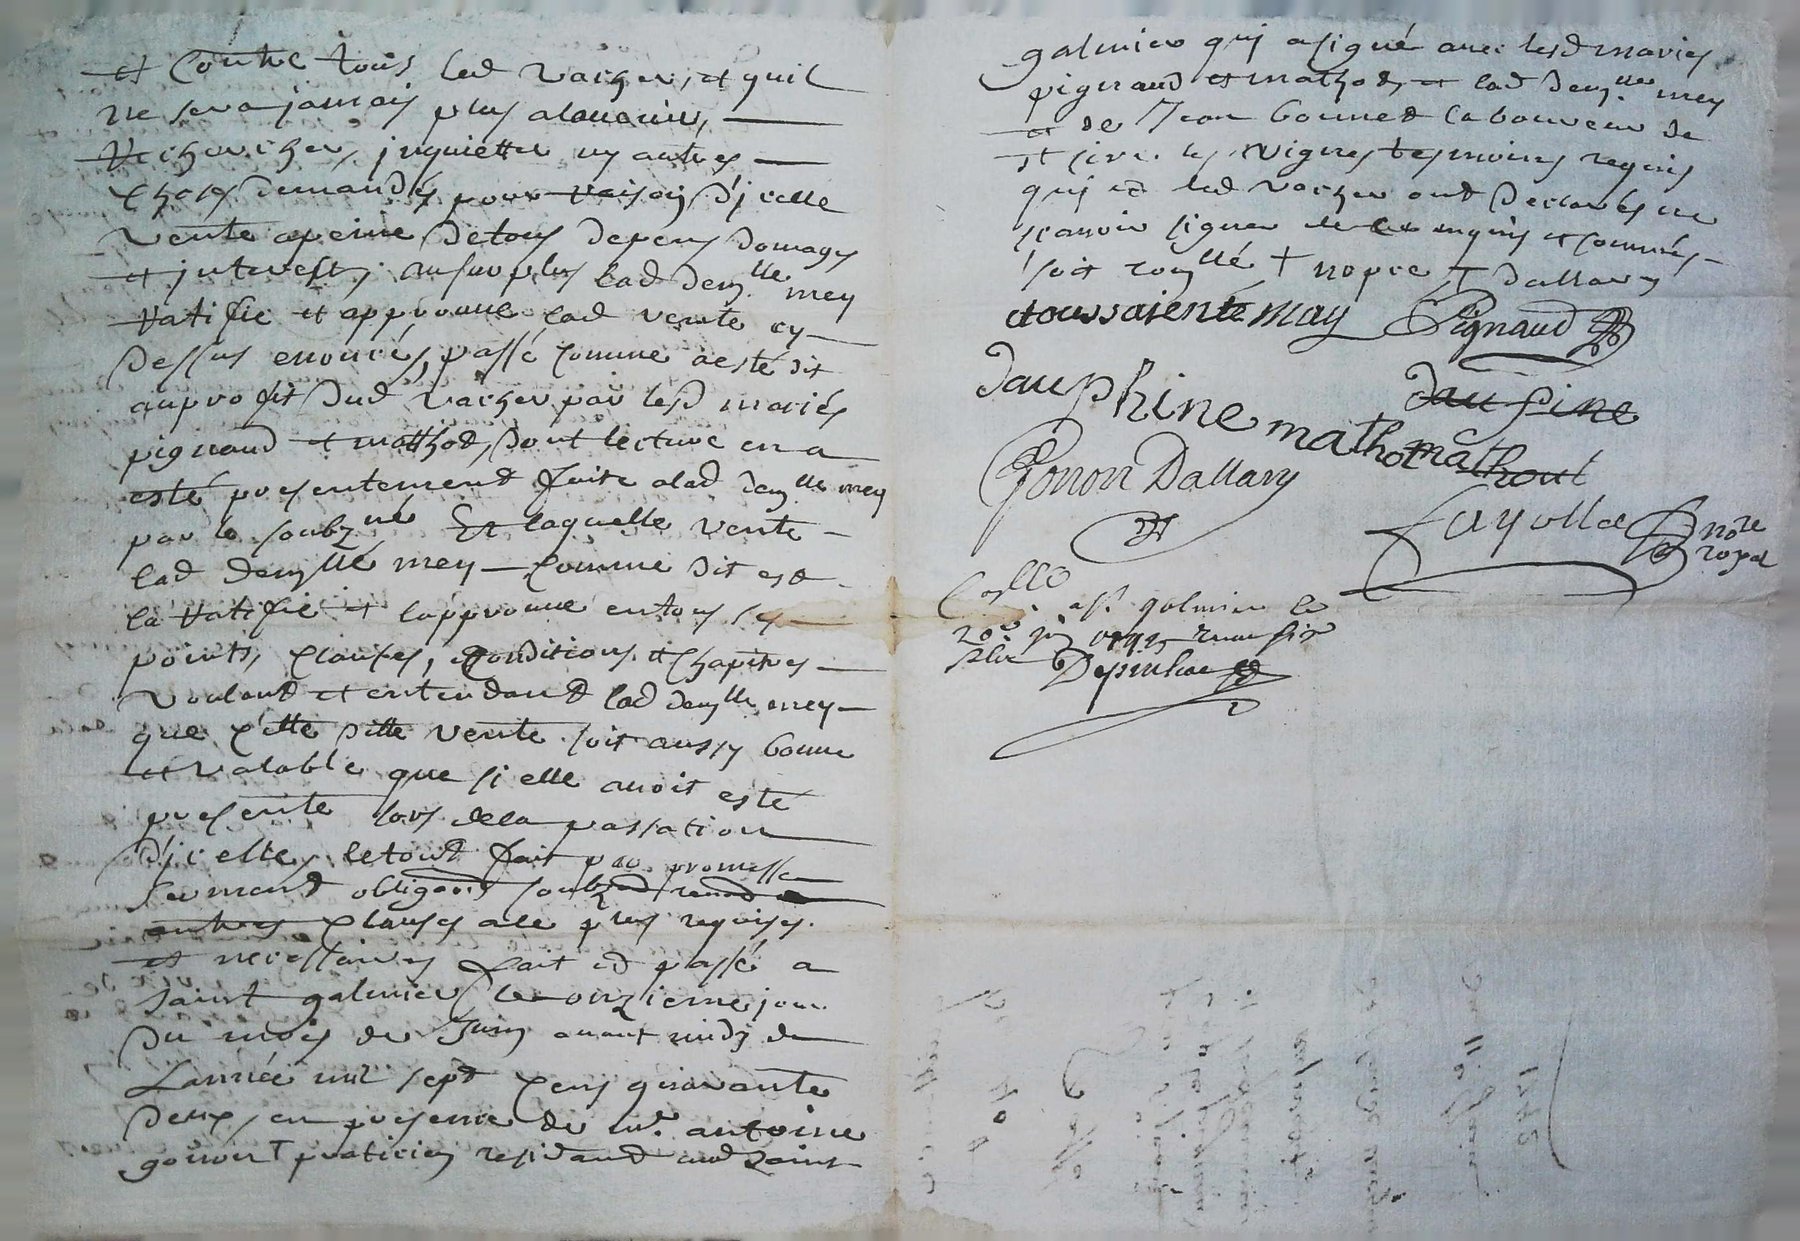 et contre tous led vacher, et quil
ne sera jamais plus alauenir,
recherchez, jnquiettez ny autres
choses demandés pour raison d'jcelle
vente apeine de tous depens domages
et jnterests, ausurplus lad demlle mey
ratifie et approuue lad vente cy
dessus enoncés, passé comme a esté dit
auprofit dud vacher par lesd mariés
pignaud et mathod, dont lecture en a
esté presentement faite alad demlle mey
par le soubzné Et laquelle vente
lad demlle mey comme dit est
la ratifie et l'approuue en tous ses
points, clauses, conditions et chapitres
voulant et entendant lad demlle mey
que cette ditte vente soit aussy bonne
et valable que si elle auoit esté
presente lors de la passation
d'jcelle, le tout fait par promesse
serment obligaõn soubz
clauses ale plus requises
et necessaires fait et passé a
saint galmier le onzieme jour
du mois de Juin auant midy de
Lannée mil sept cens quarante
deux, en presence de mr. antoine
gonon T praticien residant aud saint
galmier qui a signé auec lesd mariés
pignaud et mathod, et lad demlle mey
et de Jean bonnet laboureur de
st cire les vignes tesmoins requis
qui et led vacher ont declarés ne
scauoir signer de ce enquis et sommés
soit royllé + nopce T dallary
toussaiente may Pignaud
dauphine mathot
daufine mathout
Gonon Dallary
fayolle nore royal
Collé a st galmier le